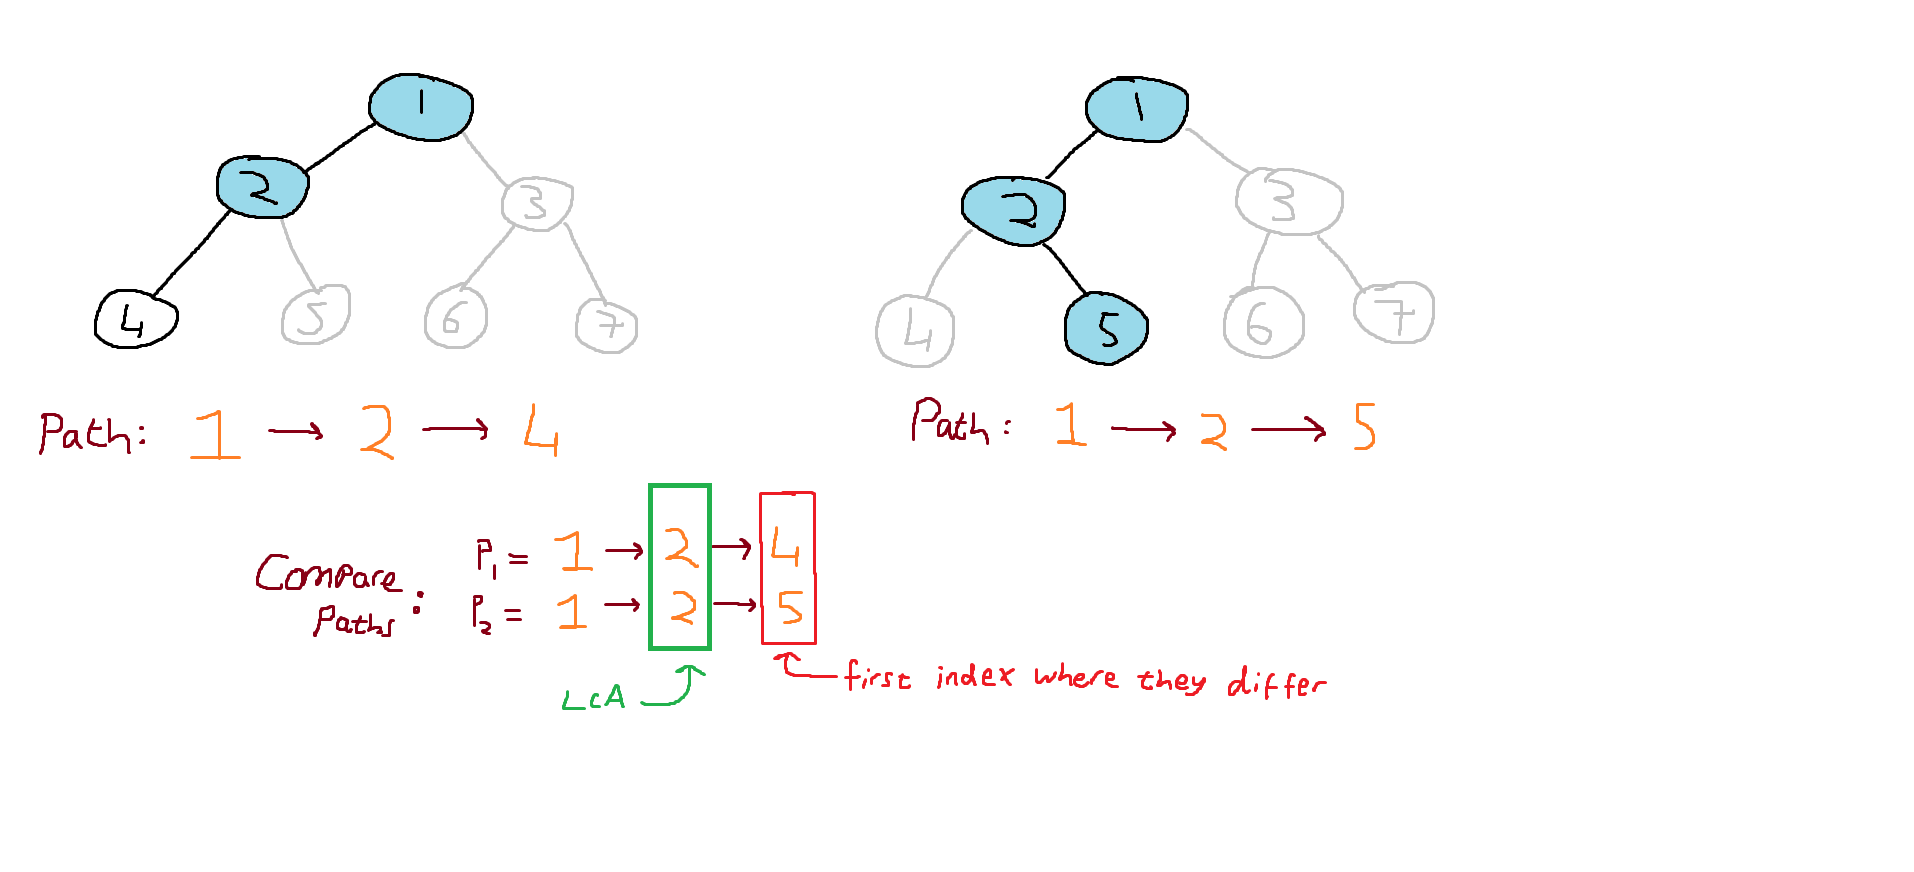 1
1
2
3
2
3
4
5
6
7
4
5
6
7
Path: 1 → 2 → 4
Path: 1 → 2 → 5
Compare Paths:
P1 = 1 → 2 → 4
P2 = 1 → 2 → 5
LCA
first index where they differ